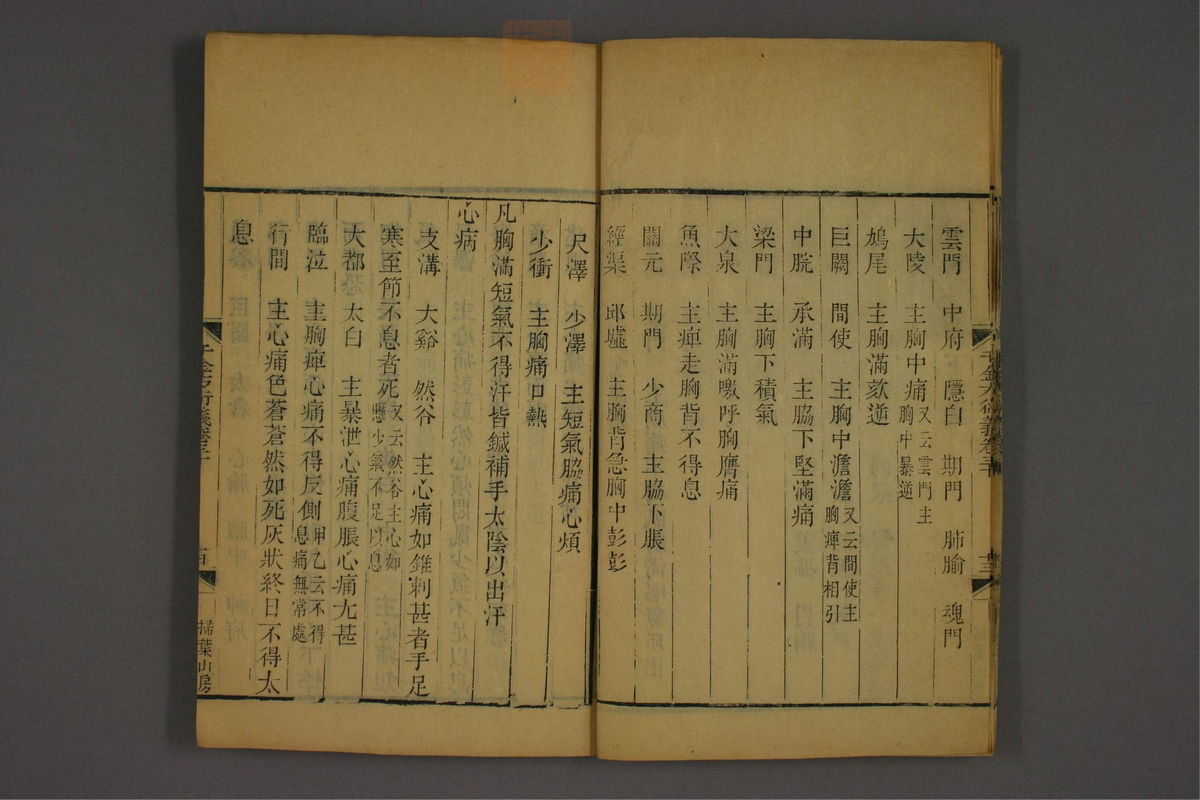 雲門　中府　隱白　期門　肺腧　魂門
大陵　主胸中痛又云雲門主胸中暴逆
鳩尾　主胸滿欬逆
巨闕　間使　主胸中澹澹又云間使主胸痺背相引
中脘　承滿　主脇下堅滿痛
梁門　主胸下積氣
大泉　主胸滿噭呼胸膺痛
魚際　主痺走胸背不得息
關元　期門　少商　主脇下脹
經渠　邱墟　主胸背急胸中彭彭
尺澤　少澤　主短氣脇痛心煩
少衝　主胸痛口熱
凡胸滿短氣不得汗皆鍼補手太陰以出汗
心病
支溝　大谿　然谷　主心痛如錐刺甚者手足
寒至節不息者死又云然谷主心如懸少氣不足以息
大都　太白　主暴泄心痛腹脹心痛尤甚
臨泣　主胸痺心痛不得反側甲乙云不得息痛無常處
行間　主心痛色蒼蒼然如死灰狀終日不得太
息
千金方衍義卷三十
掃葉山房